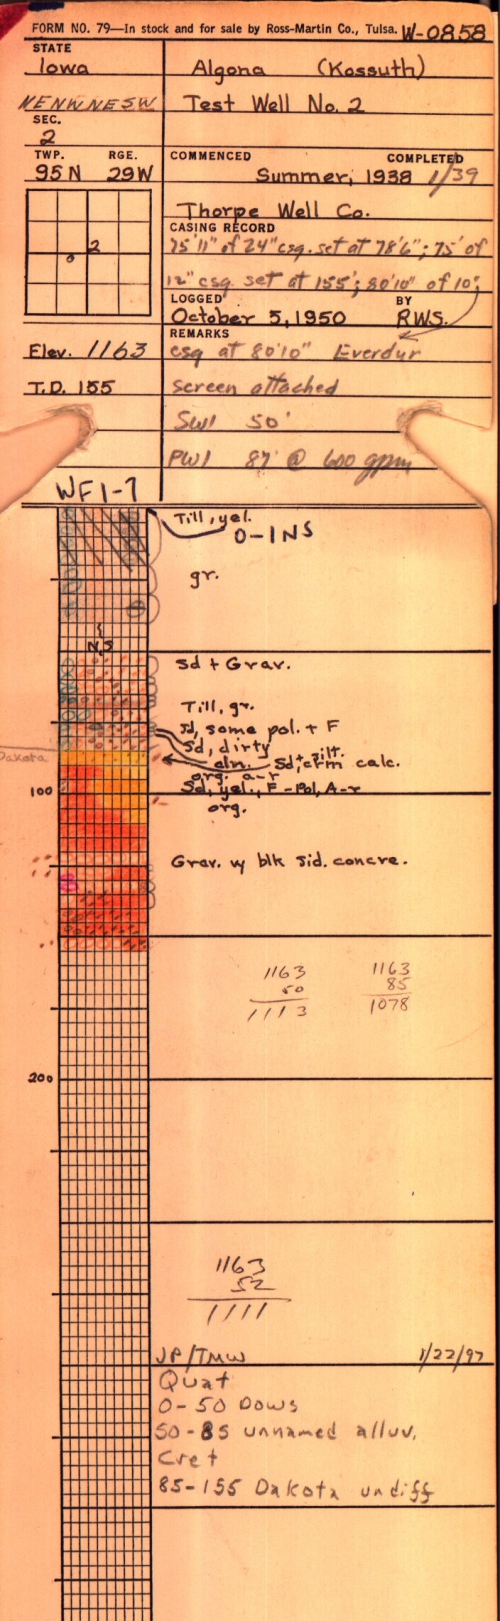 FORM NO. 79—In stock and for sale by Ross-Martin Co., Tulsa. W-0858
STATE
Iowa
Algona (Kossuth)
NENWNESW
Test Well No. 2
SEC.
2
TWP. RGE.
95N 29W
COMMENCED COMPLETED
Summer, 1938 1/39
Thorpe Well Co.
CASING RECORD
75'11" of 24" csg. set at 78'6"; 75' of
12" csg set at 155'; 80'10" of 10"
2
LOGGED BY
October 5, 1950 R.W.S.
REMARKS
Elev. 1163
csg at 80'10" Everdur
T.D. 155
screen attached
SWl 50'
PWl 87' @ 600 gpm
WF1-7
Till, yel.
0-1 NS
gr.
NS
Sd + Grav.
Till, gr.
Sd, some pol. + F
Sd, dirty
Dakota
dn. Sd, cfm calc.
silt.
org. a-r
100
Sd, yel., F-Pol, A-r
org.
Grav. w/ blk sid. concre.
1163
50
1113
1163
85
1078
200
1163
52
1111
JP/TMW 1/22/97
Quat
0-50 Dows
50-85 unnamed alluv.
Cret
85-155 Dakota undiff